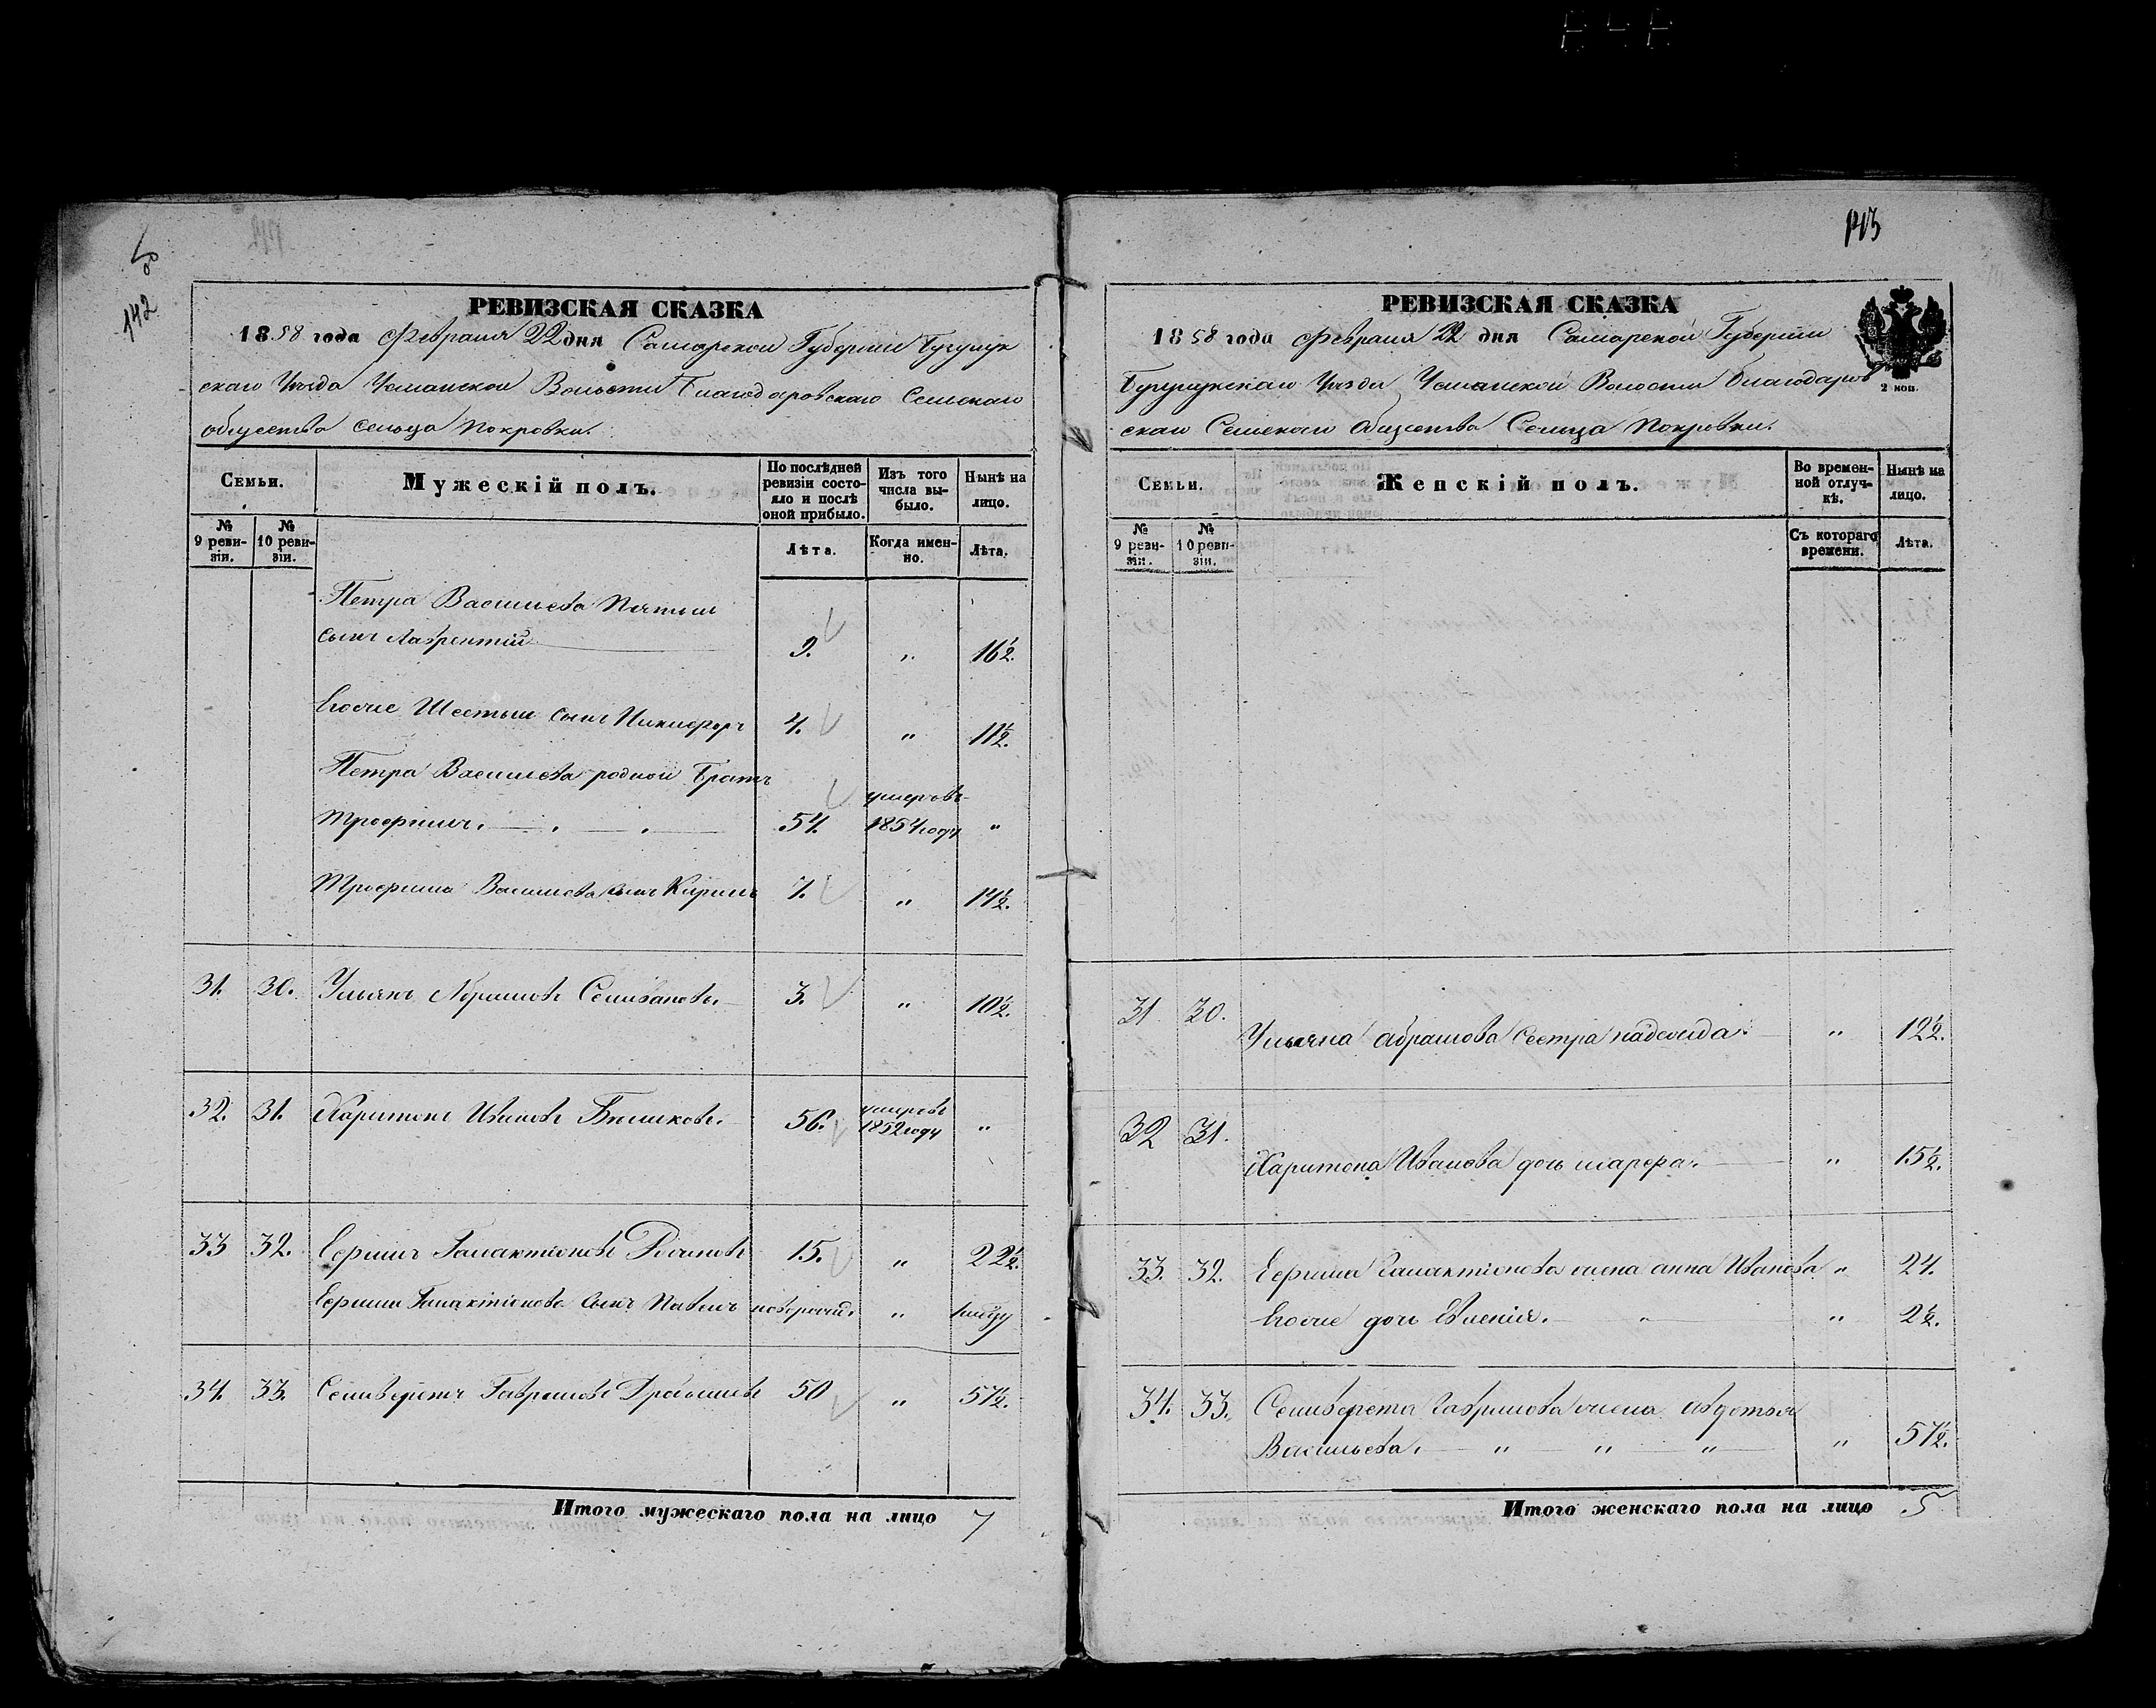 142
РЕВИЗСКАЯ СКАЗКА
1858 года Февраля 22 дня Самарской Губернии Бугурус
скаго Уезда Волости Благодаровскаго Сельскаго
общества сельца Покровки.
Семьи.
Мужескій полъ.
По послѣдней ревизіи состояло и послѣ оной прибыло.
Изъ того числа выбыло.
Нынѣ на лицо.
№ 9 ревизіи.
№ 10 ревизіи.
Лѣта.
Когда именно.
Лѣта.
Петра Васильева Пятый
сынъ Лаврентій 9. „ 16½.
Егоже Шестый сынъ Никифоръ 4. „ 11½.
Петра Васильева родной Братъ
Трофимъ. 54. умеръ въ 1854 году „
Трофима Васильева сынъ Кирилъ 7. „ 14½.
31. 30. Ульянъ Абрамовъ Селивановъ. 3. „ 10½.
32. 31. Харитонъ Ивановъ 56. умеръ въ 1852 году „
33 32. Ефимъ Галактіоновъ 15. „ 22½.
Ефима Галактіонова сынъ Павелъ „
34. 33. Селиверстъ Гавриловъ 50 „ 57½.
Итого мужескаго пола на лицо 7
143
РЕВИЗСКАЯ СКАЗКА
1858 года Февраля 22 дня Самарской Губерніи
Уезда Волости Благодаров
скаго Сельскаго Общества Сельца Покровки.
2 коп.
Семьи.
Женскій полъ.
Во временной отлучкѣ.
Нынѣ на лицо.
№ 9 ревизіи.
№ 10 ревизіи.
Съ котораго времени.
Лѣта.
31 30. Ульяна Абрамова сестра надежда. „ 12½.
32 31. Харитона Иванова дочь марфа. „ 15½.
33. 32. Ефима Галактіонова жена анна Иванова „ 24.
Егоже дочь Евгенія. „ „ 2½.
34. 33. Селиверста Гаврилова жена авдотья
Васильева. „ „ „ „ 57½.
Итого женскаго пола на лицо 5